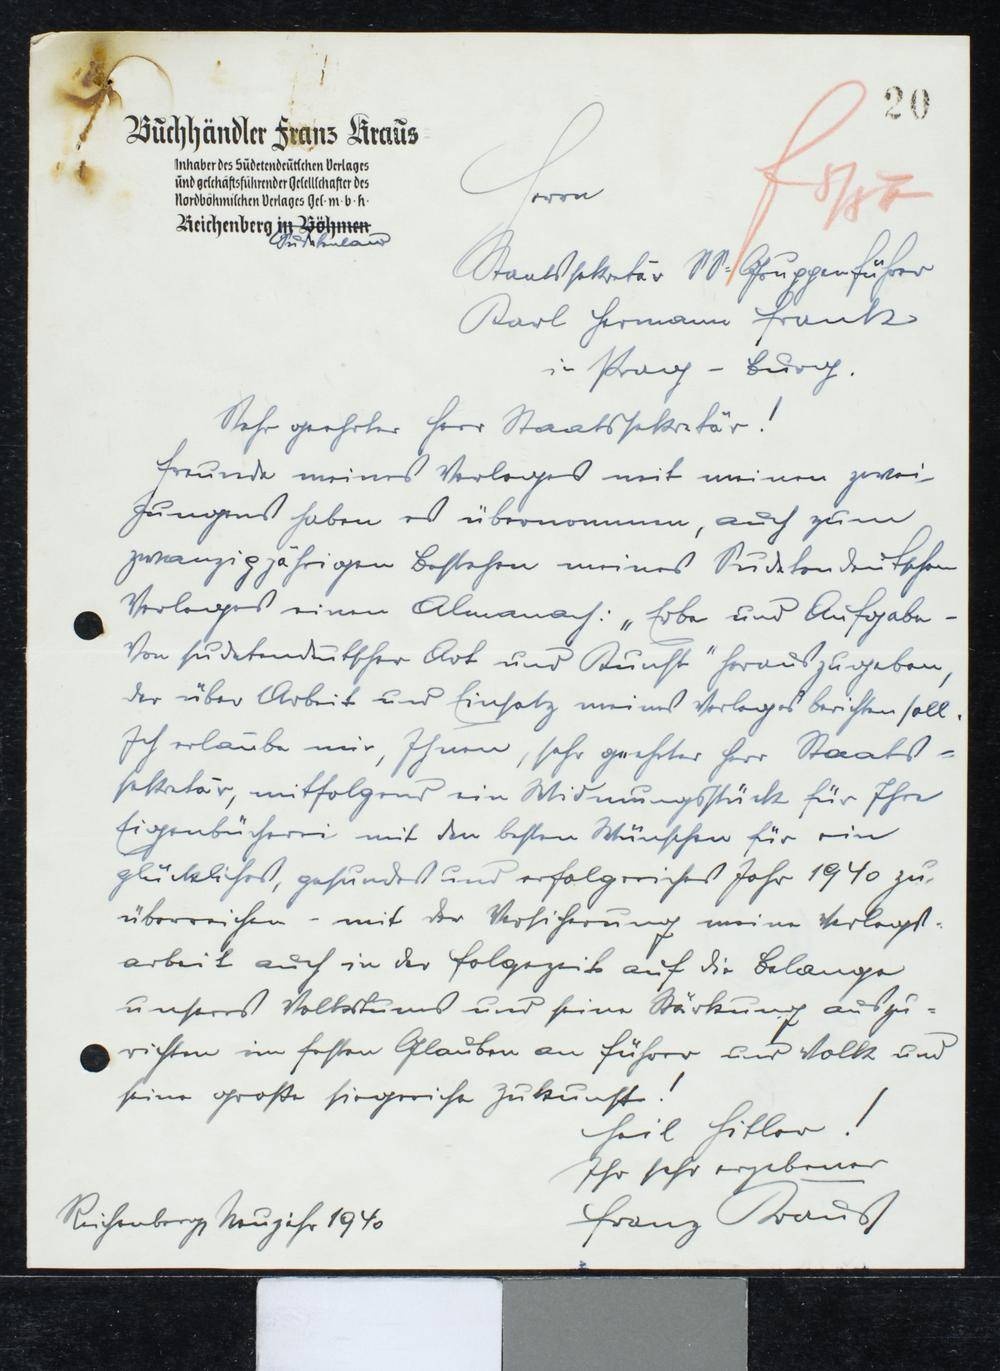 20
Buchhändler Franz Kraus
Inhaber des Sudetendeutschen Verlages
und geschäftsführender Gesellschafter des
Nordböhmischen Verlages Ges. m. b. H.
Reichenberg in Böhmen
Sudetenland
Herrn
Staatssekretär SS-Gruppenführer
Karl Hermann Frank
in Prag - Burg.
Sehr geehrter Herr Staatssekretär!
Freunde meines Verlages mit meinen zwei
Jungens haben es übernommen, auch zum
zwanzigjährigen Bestehen meines Sudetendeutschen
Verlages einen Almanach: „Erbe und Aufgabe -
Von sudetendeutscher Art und Kunst" herauszugeben,
der über Arbeit und Einsatz meines Verlages berichten soll.
Ich erlaube mir, Ihnen, sehr geehrter Herr Staats=
sekretär, mitfolgend ein Widmungsstück für Ihre
Eigenbücherei mit den besten Wünschen für ein
glückliches, gesundes und erfolgreiches Jahr 1940 zu
überreichen - mit der Versicherung meine Verlags-
arbeit auch in der Folgezeit auf die Belange
unseres Volkstums und seine Stärkung auszu=
richten im festen Glauben an Führer und Volk und
seine große siegreiche Zukunft!
Heil Hitler!
Ihr sehr ergebener
Franz Kraus
Reichenberg, Neujahr 1940